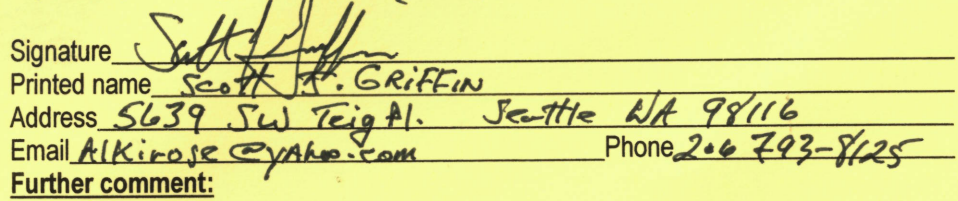 Signature Scott J. Griffin
Printed name Scott J. GRIFFIN
Address 5639 SW Teig Pl. Seattle WA 98116
Email AlKirose@yahoo.com Phone 206 793-8125
Further comment: